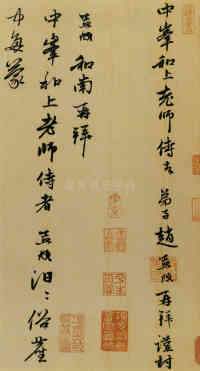 中峯和上老师侍者 弟子趙孟頫再拜謹封
孟頫和南再拜
中峯和上老師侍者 孟頫汩〻俗塵
中每蒙